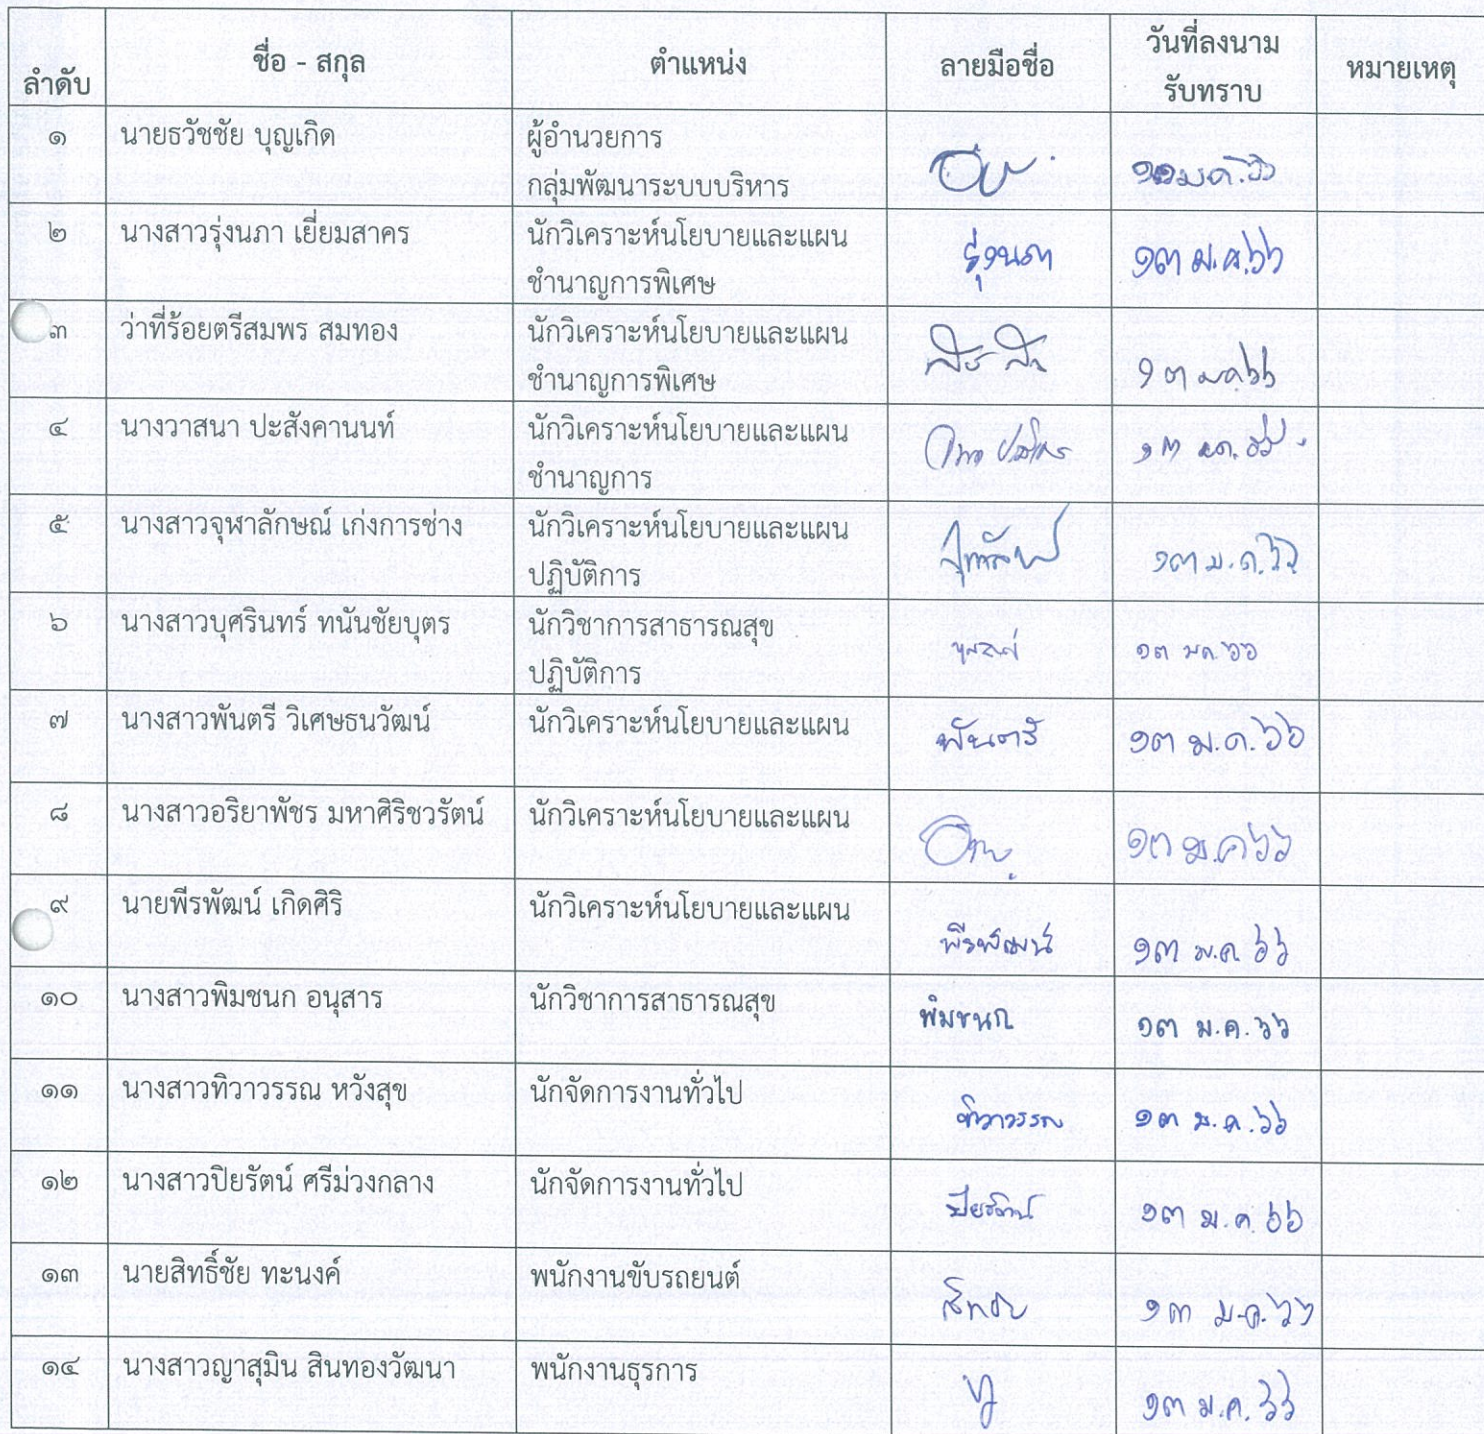 ลำดับ ชื่อ - สกุล ตำแหน่ง ลายมือชื่อ วันที่ลงนาม หมายเหตุ
รับทราบ
๑ นายธวัชชัย บุญเกิด ผู้อำนวยการ
กลุ่มพัฒนาระบบบริหาร ม.ค. ๖๖
๒ นางสาวรุ่งนภา เยี่ยมสาคร นักวิเคราะห์นโยบายและแผน รุ่งนภา ๑๓ ม.ค. ๖๖
ชำนาญการพิเศษ
๓ ว่าที่ร้อยตรีสมพร สมทอง นักวิเคราะห์นโยบายและแผน
ชำนาญการพิเศษ ๑๓ มค. ๖๖
๔ นางวาสนา ปะสังคานนท์ นักวิเคราะห์นโยบายและแผน ๑๓ มค. ๖๖
ชำนาญการ
๕ นางสาวจุฬาลักษณ์ เก่งการช่าง นักวิเคราะห์นโยบายและแผน ๑๓ ม.ค. ๖๖
ปฏิบัติการ
๖ นางสาวบุศรินทร์ ทนันชัยบุตร นักวิชาการสาธารณสุข ๑๓ มค. ๖๖
ปฏิบัติการ
๗ นางสาวพันตรี วิเศษธนวัฒน์ นักวิเคราะห์นโยบายและแผน พันตรี ๑๓ ม.ค. ๖๖
๘ นางสาวอริยาพัชร มหาศิริชวรัตน์ นักวิเคราะห์นโยบายและแผน ๑๓ ม.ค ๖๖
๙ นายพีรพัฒน์ เกิดศิริ นักวิเคราะห์นโยบายและแผน พีรพัฒน์ ๑๓ ม.ค. ๖๖
๑๐ นางสาวพิมชนก อนุสาร นักวิชาการสาธารณสุข พิมชนก ๑๓ ม.ค. ๖๖
๑๑ นางสาวทิวาวรรณ หวังสุข นักจัดการงานทั่วไป ทิวาวรรณ ๑๓ ม.ค. ๖๖
๑๒ นางสาวปิยรัตน์ ศรีม่วงกลาง นักจัดการงานทั่วไป ปิยรัตน์ ๑๓ ม.ค. ๖๖
๑๓ นายสิทธิ์ชัย ทะนงค์ พนักงานขับรถยนต์ ๑๓ ม.ค. ๖๖
๑๔ นางสาวญาสุมิน สินทองวัฒนา พนักงานธุรการ ๑๓ ม.ค. ๖๖